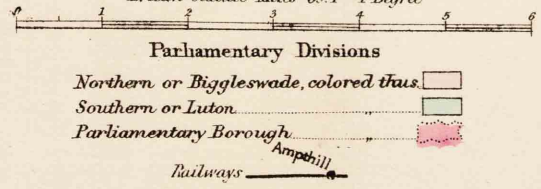 1 2 3 4 5 6
Parliamentary Divisions
Northern or Biggleswade, colored thus
Southern or Luton „
Parliamentary Borough „
Ampthill
Railways